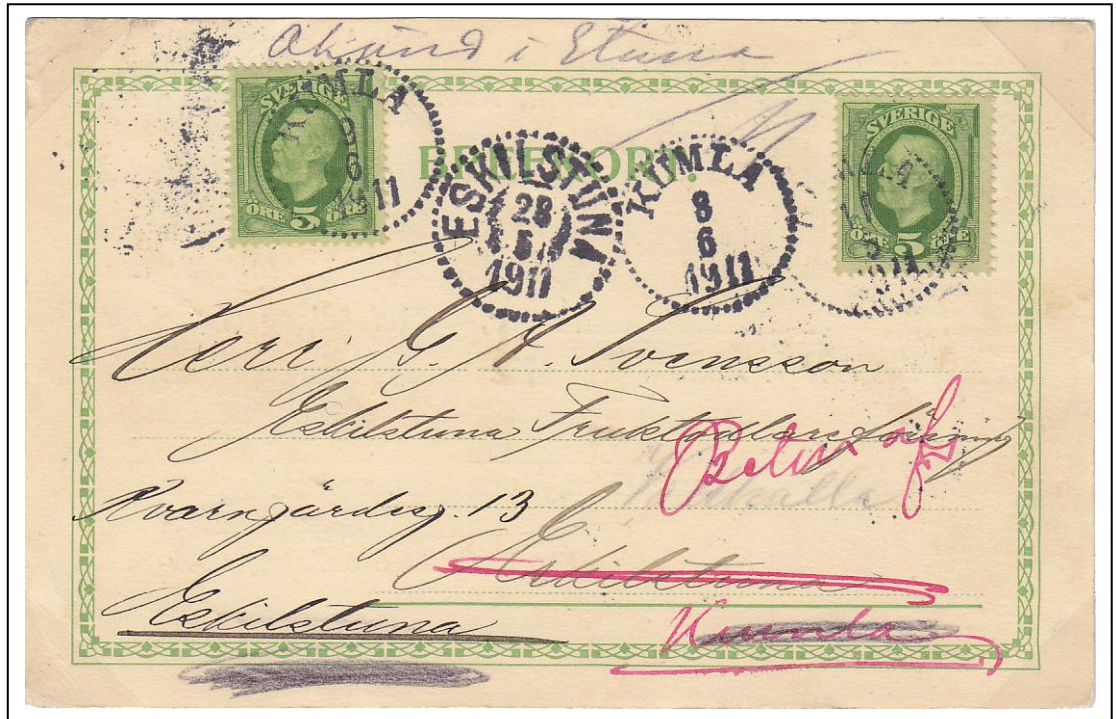 Okänd i Etuna
SVERIGE
5
ÖRE ÖRE
KUMLA
6
1911
BREFKORT.
ESKILSTUNA
28
5
1911
KUMLA
8
6
1911
SVERIGE
5
ÖRE ÖRE
Herr G. A. Svensson
Eskilstuna Fruktodlareförening
Retur
Kvarngärdsg. 13
Eskilstuna
Eskilstuna
Kumla